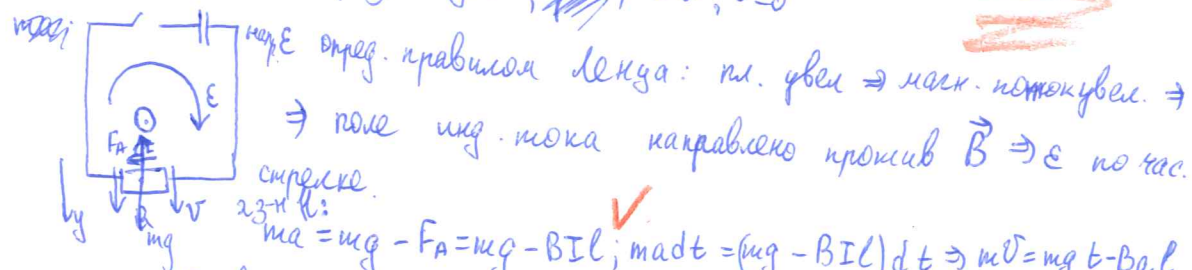 напр. ℰ опред. правилом Ленца: пл. увел ⇒ магн. поток увел. ⇒
ℰ
F_A
⇒ поле инд. тока направлено против B⃗ ⇒ ℰ по час.
стрелке.
y v 2 з-н Н:
mg
ma = mg - F_A = mg - BIl; madt = (mg - BIl)dt ⇒ mv = mgt - Bql